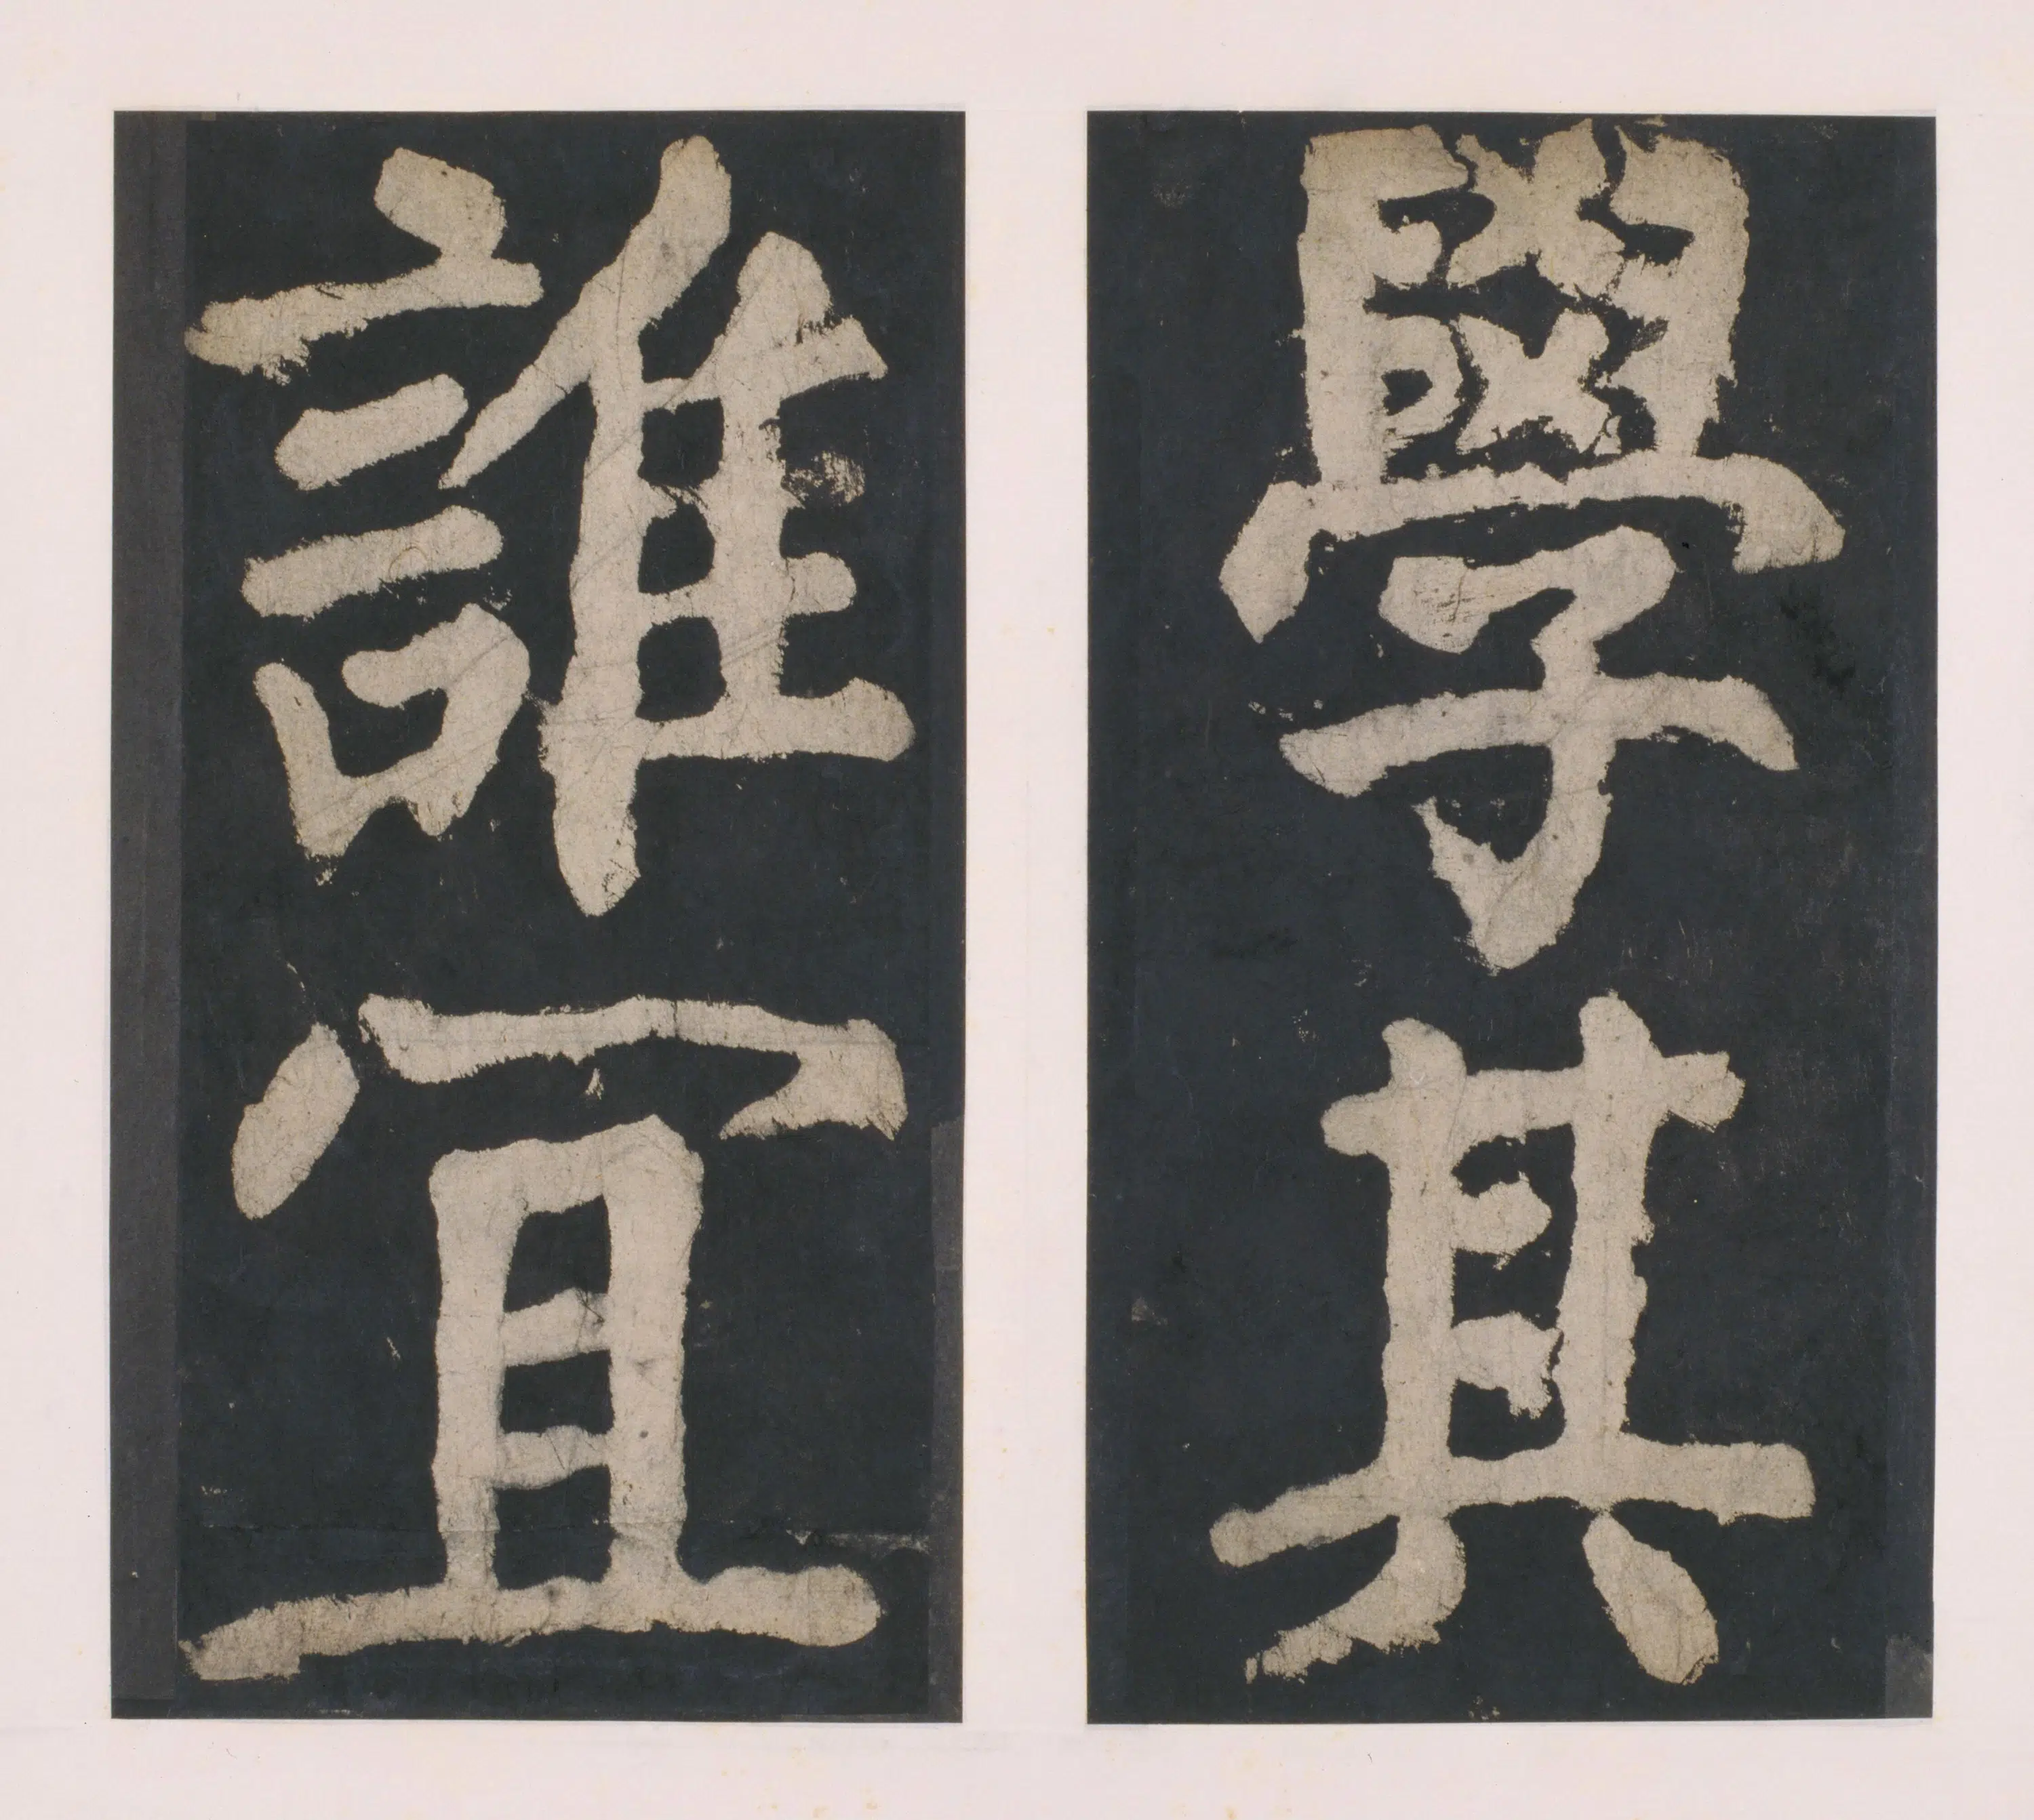 學其
誰宜